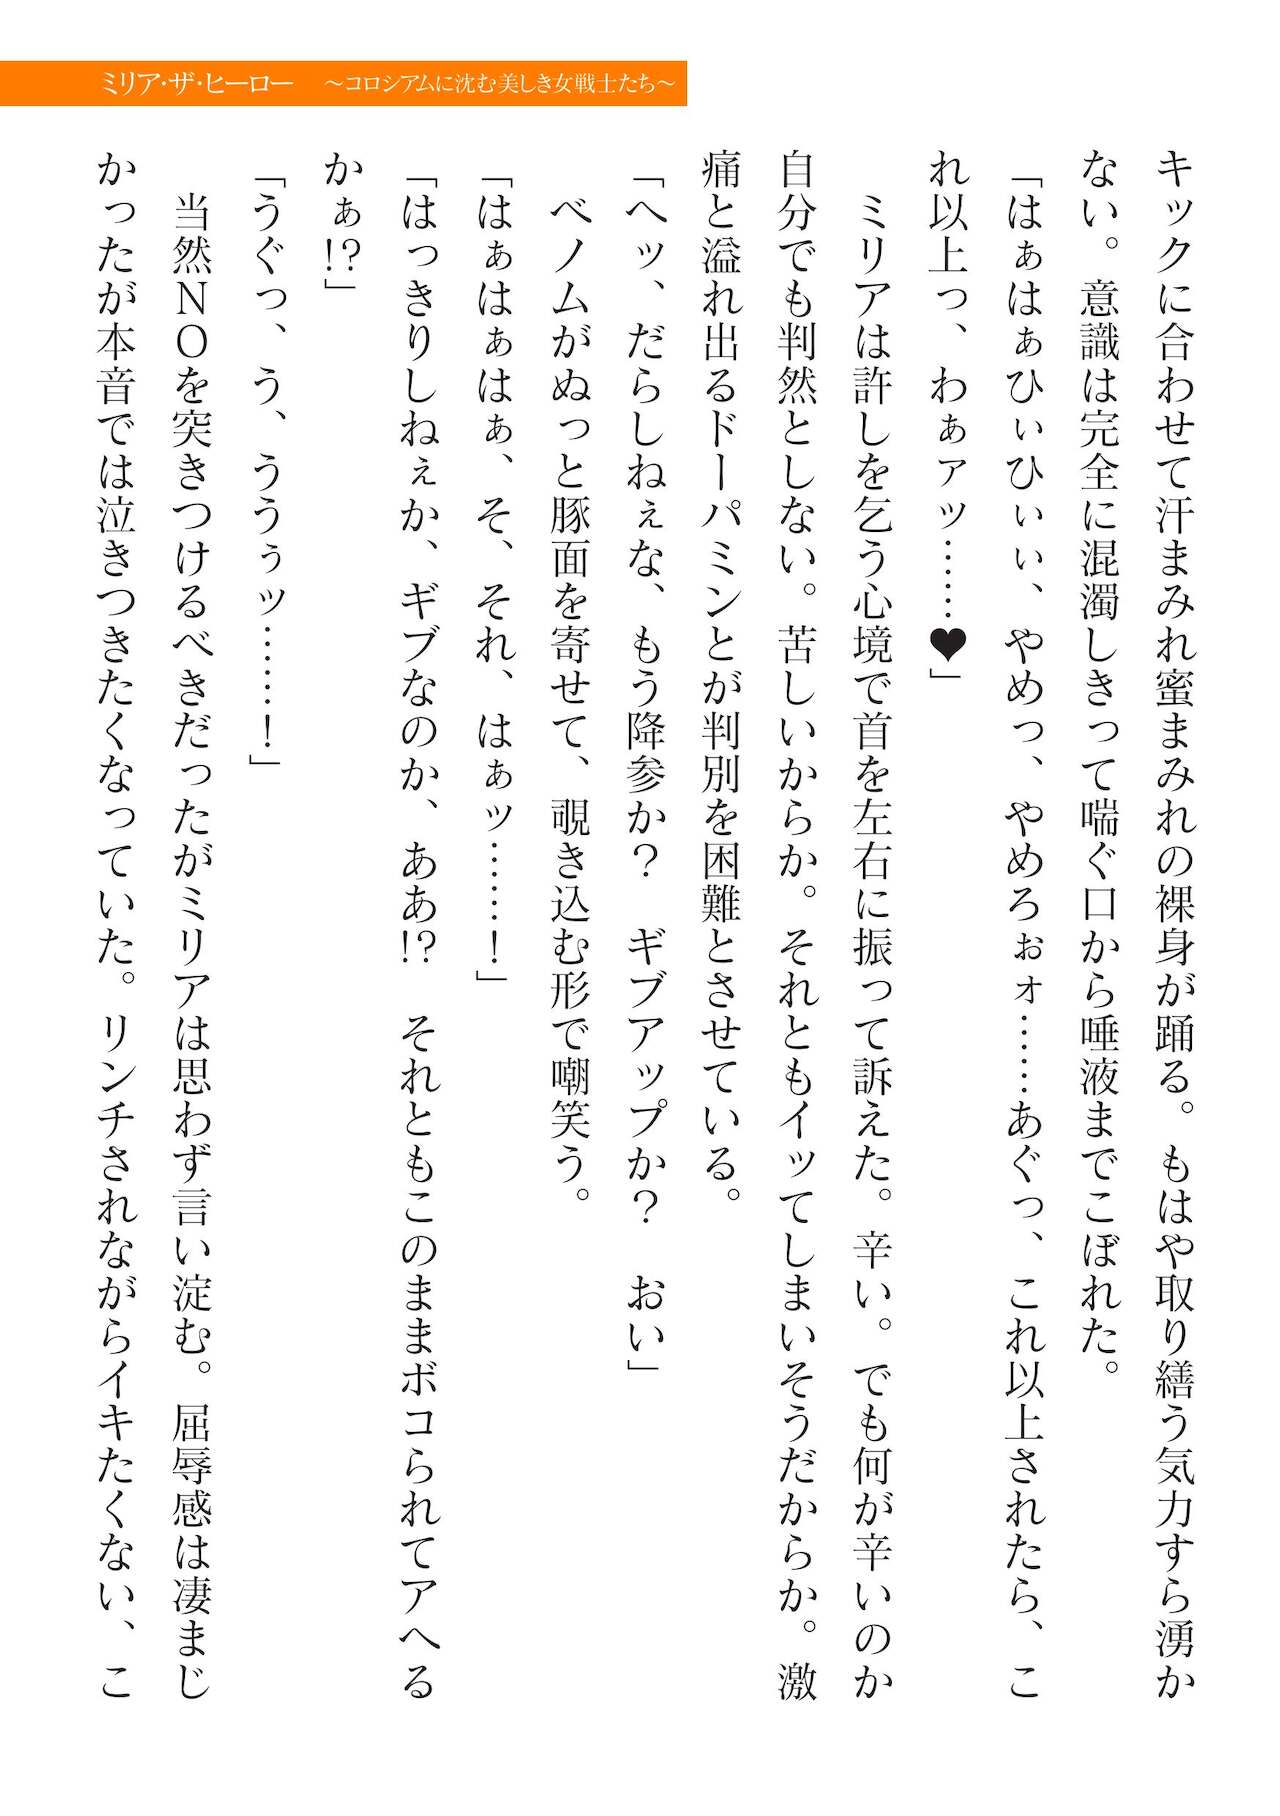 ミリア・ザ・ヒーロー　～コロシアムに沈む美しき女戦士たち～
キックに合わせて汗まみれ蜜まみれの裸身が踊る。もはや取り繕う気力すら湧か
ない。意識は完全に混濁しきって喘ぐ口から唾液までこぼれた。
「はぁはぁひぃひぃぃ、やめっ、やめろぉォ……あぐっ、これ以上されたら、こ
れ以上っ、わぁァッ……♥」
　ミリアは許しを乞う心境で首を左右に振って訴えた。辛い。でも何が辛いのか
自分でも判然としない。苦しいからか。それともイッてしまいそうだからか。激
痛と溢れ出るドーパミンとが判別を困難とさせている。
「ヘッ、だらしねぇな、もう降参か？　ギブアップか？　おい」
　ベノムがぬっと豚面を寄せて、覗き込む形で嘲笑う。
「はぁはぁはぁ、そ、それ、はぁッ……！」
「はっきりしねぇか、ギブなのか、ああ!?　それともこのままボコられてアヘる
かぁ!?」
「うぐっ、う、ううぅッ……！」
　当然ＮＯを突きつけるべきだったがミリアは思わず言い淀む。屈辱感は凄まじ
かったが本音では泣きつきたくなっていた。リンチされながらイキたくない、こ